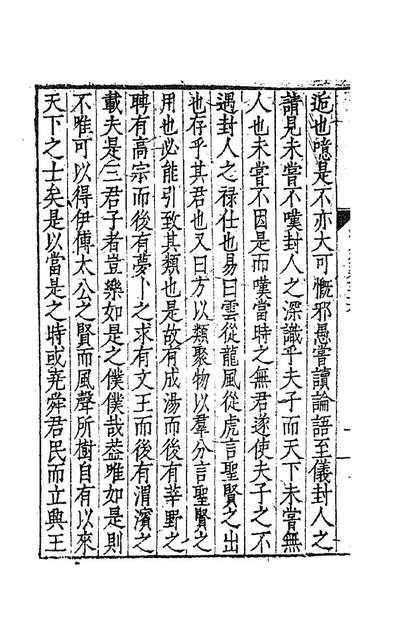 逅也噫是不亦大可慨邪愚嘗讀論語至儀封人之
請見未嘗不嘆封人之深識乎夫子而天下未嘗無
人也未嘗不因是而嘆當時之無君遂使夫子之不
遇封人之禄仕也易曰雲從龍風從虎言聖賢之出
也存乎其君也又曰方以類聚物以羣分言聖賢之
用也必能引致其類也是故有成湯而後有莘野之
聘有高宗而後有夢卜之求有文王而後有渭濱之
載夫是三君子者豈樂如是之僕僕哉葢唯如是則
不唯可以得伊傅太公之賢而風聲所樹自有以來
天下之士矣是以當是之時或堯舜君民而立興王